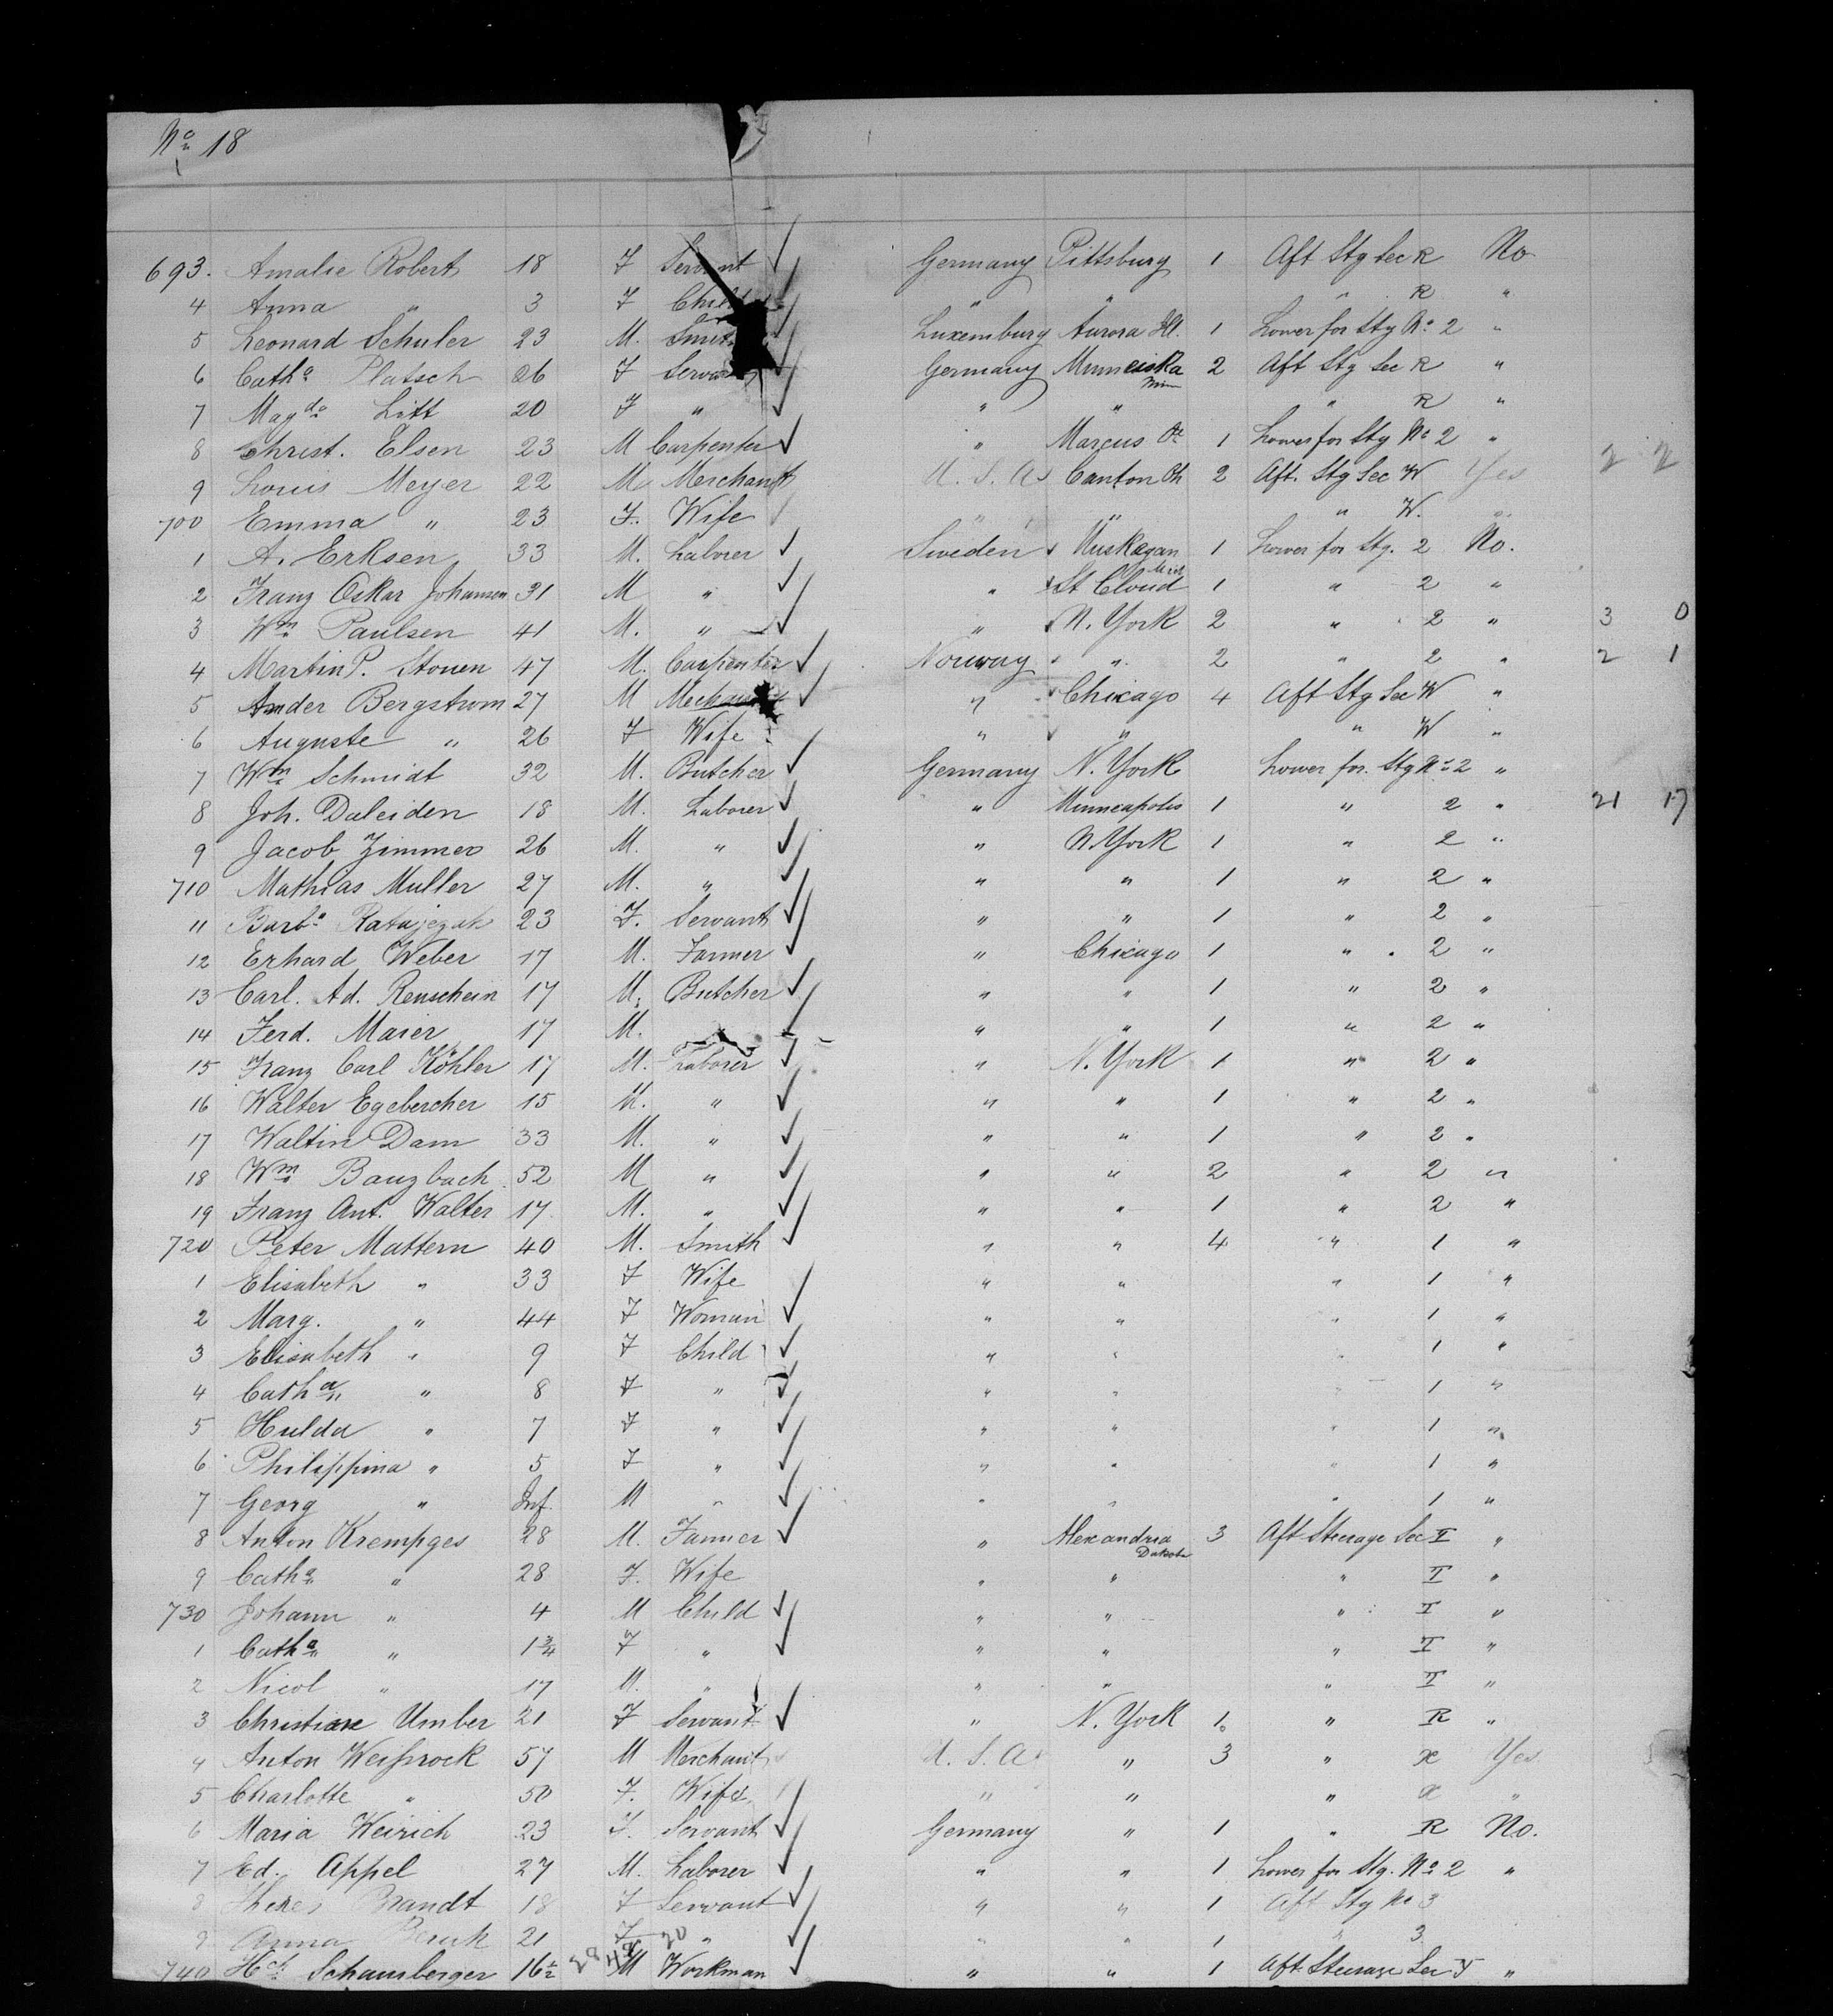 No 18
693. Amalie Robert 18 F Servant Germany Pittsburg 1 Aft Stg Sec R No
4 Anna " 3 F Child " " " R "
5 Leonard Schuler 23 M. Smith Luxemburg Aurora Ill. 1 Lower for Stg No 2 "
6 Catha Platsch 26 F Servant Germany Minneiska Min 2 Aft Stg Sec R "
7 Magda Litt 20 F " " " " R "
8 Christ. Elsen 23 M Carpenter " Marcus 1 Lower for Stg No 2 "
9 Louis Meyer 22 M Merchant U. S. A. Canton Oh 2 Aft. Stg Sec W Yes 2 2
700 Emma " 23 F. Wife " " " W. "
1 A. Erksen 33 M. Laborer Sweden Muskegan Mich 1 Lower for Stg. 2 No.
2 Franz Oskar Johansen 31 M " " St Cloud 1 " 2 "
3 Wm Paulsen 41 M. " " N. York 2 " 2 " 3 0
4 Martin P. Stouen 47 M. Carpenter Norway " 2 " 2 " 2 1
5 Ander Bergstrom 27 M Mechanic " Chicago 4 Aft Stg Sec W "
6 Auguste " 26 F Wife " " " W "
7 Wm Schmidt 32 M. Butcher Germany N. York Lower for. Stg No 2 "
8 Joh. Daleiden 18 M. Laborer " Minneapolis 1 " 2 " 21 17
9 Jacob Zimmer 26 M. " " N. York 1 " 2 "
710 Mathias Muller 27 M. " " " 1 " 2 "
11 Barba Ratajczak 23 F. Servant " " 1 " 2 "
12 Erhard Weber 17 M. Farmer " Chicago 1 " 2 "
13 Carl. Ad. Renschein 17 M. Butcher " " 1 " 2 "
14 Ferd. Maier 17 M. " " " 1 " 2 "
15 Franz Carl Köhler 17 M. Laborer " N. York 1 " 2 "
16 Walter Egebercher 15 M. " " " 1 " 2 "
17 Waltin Dam 33 M. " " " 1 " 2 "
18 Wm Banzbach 52 M " " " 2 " 2 "
19 Franz Ant. Walter 17 M. " " " 1 " 2 "
720 Peter Mattern 40 M. Smith " " 4 " 1 "
1 Elisabeth " 33 F Wife " " " 1 "
2 Marg. " 44 F Woman " " " 1 "
3 Elisabeth " 9 F Child " " " 1 "
4 Catha " 8 F " " " " 1 "
5 Hulda " 7 F " " " " 1 "
6 Philippina " 5 F " " " " 1 "
7 Georg " Inf. M " " " " 1 "
8 Anton Krempges 28 M. Farmer " Alexandria Dakota 3 Aft Steerage Sec T "
9 Catha " 28 F. Wife " " " T "
730 Johann " 4 M Child " " " T "
1 Catha " 1 3/4 F " " " " T "
2 Nicol " 17 M. " " " " T "
3 Christiane Umber 21 F Servant " N. York 1 " R "
4 Anton Weißrock 57 M Merchant U. S. A. " 3 " X Yes
5 Charlotte " 50 F. Wife " " " X "
6 Maria Weirich 23 F. Servant Germany " 1 " R No.
7 Ed. Appel 27 M. Laborer " " 1 Lower for Stg. No 2 "
8 Brandt 18 F Servant " " 1 Aft Stg No 3
9 Anna 21 F " " " 1 " 3
740 Hch Schamberger 16 1/2 M Workman " " 1 Aft Steerage Sec "